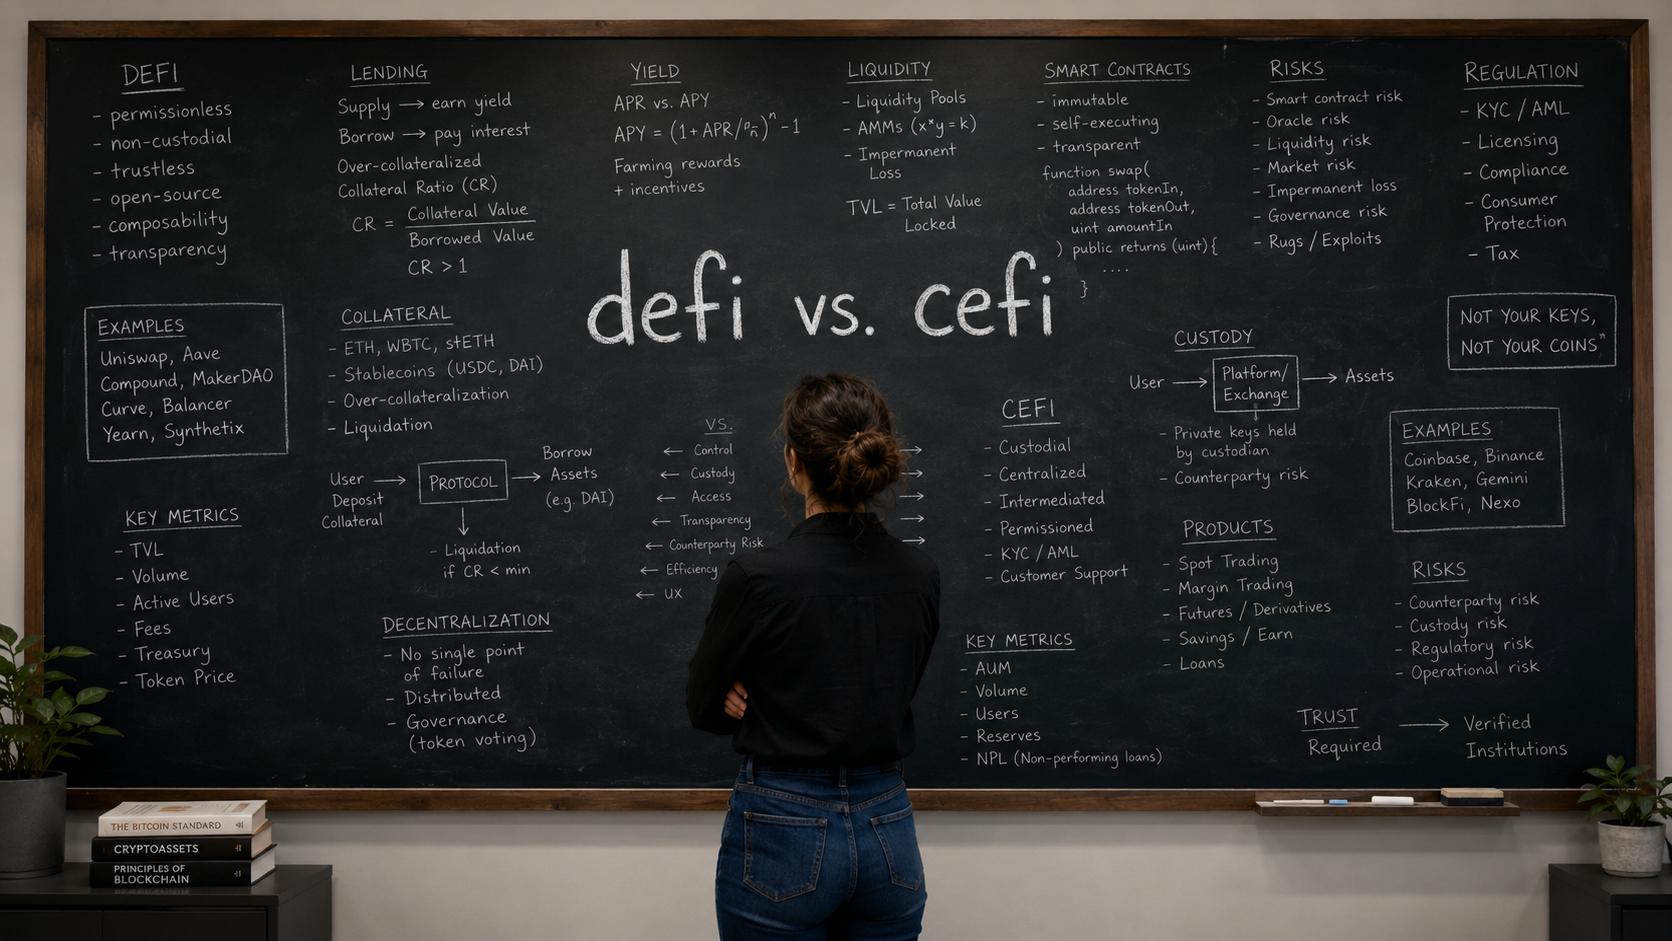 DEFI
- permissionless
- non-custodial
- trustless
- open-source
- composability
- transparency
LENDING
Supply → earn yield
Borrow → pay interest
Over-collateralized
Collateral Ratio (CR)
CR = Collateral Value
Borrowed Value
CR > 1
YIELD
APR vs. APY
APY = (1 + APR/n)^n - 1
Farming rewards
+ incentives
LIQUIDITY
- Liquidity Pools
- AMMs (x*y = k)
- Impermanent
Loss
TVL = Total Value
Locked
SMART CONTRACTS
- immutable
- self-executing
- transparent
function swap(
address tokenIn,
address tokenOut,
uint amountIn
) public returns (uint) {
....
}
RISKS
- Smart contract risk
- Oracle risk
- Liquidity risk
- Market risk
- Impermanent loss
- Governance risk
- Rugs / Exploits
REGULATION
- KYC / AML
- Licensing
- Compliance
- Consumer
Protection
- Tax
defi vs. cefi
EXAMPLES
Uniswap, Aave
Compound, MakerDAO
Curve, Balancer
Yearn, Synthetix
COLLATERAL
- ETH, WBTC, stETH
- Stablecoins (USDC, DAI)
- Over-collateralization
- Liquidation
User
Deposit
Collateral
→ PROTOCOL →
Borrow
Assets
(e.g. DAI)
- Liquidation
if CR < min
KEY METRICS
- TVL
- Volume
- Active Users
- Fees
- Treasury
- Token Price
DECENTRALIZATION
- No single point
of failure
- Distributed
- Governance
(token voting)
VS.
← Control →
← Custody →
← Access →
← Transparency →
← Counterparty Risk →
← Efficiency
← UX
CEFI
- Custodial
- Centralized
- Intermediated
- Permissioned
- KYC / AML
- Customer Support
KEY METRICS
- AUM
- Volume
- Users
- Reserves
- NPL (Non-performing loans)
CUSTODY
User → Platform/
Exchange → Assets
- Private keys held
by custodian
- Counterparty risk
PRODUCTS
- Spot Trading
- Margin Trading
- Futures / Derivatives
- Savings / Earn
- Loans
NOT YOUR KEYS,
NOT YOUR COINS"
EXAMPLES
Coinbase, Binance
Kraken, Gemini
BlockFi, Nexo
RISKS
- Counterparty risk
- Custody risk
- Regulatory risk
- Operational risk
TRUST
Required
→ Verified
Institutions
THE BITCOIN STANDARD
CRYPTOASSETS
PRINCIPLES OF
BLOCKCHAIN